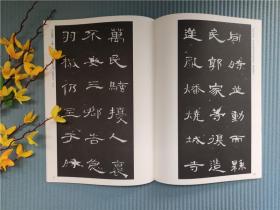 同時並動而縣
民郭家等復造
逆亂燔燒城寺
萬民騷擾人裹
不安三郡告急
羽檄仍至于時